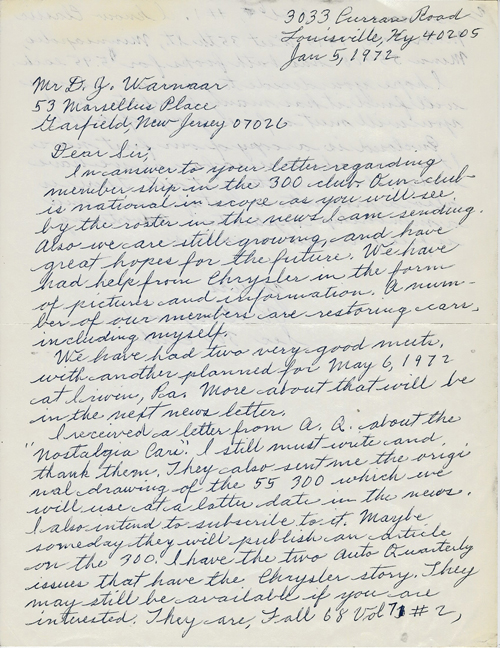 3033 Curran Road
Louisville, Ky 40205
Jan 5, 1972
Mr D. Y. Warnaar
53 Marsellus Place
Garfield, New Jersey 07026
Dear Sir;
In answer to your letter regarding
member ship in the 300 club. Our club
is national in scope as you will see
by the roster in the news I am sending.
Also we are still growing, and have
great hopes for the future. We have
had help from Chrysler in the form
of pictures and information. A num-
ber of our members are restoring cars,
including myself.
We have had two very good meets,
with another planned for May 6, 1972
at Irwin, Pa. More about that will be
in the next news letter.
I received a letter from A. Q. about the
"Nostalgia Cars". I still must write and
thank them. They also sent me the origi
nal drawing of the 55 300 which we
will use at a latter date in the news.
I also intend to subscribe to it. Maybe
someday they will publish an article
on the 300. I have the two Auto Quarterly
issues that have the Chrysler story. They
may still be available if you are
interested. They are, Fall 68 Vol 7 # 2,